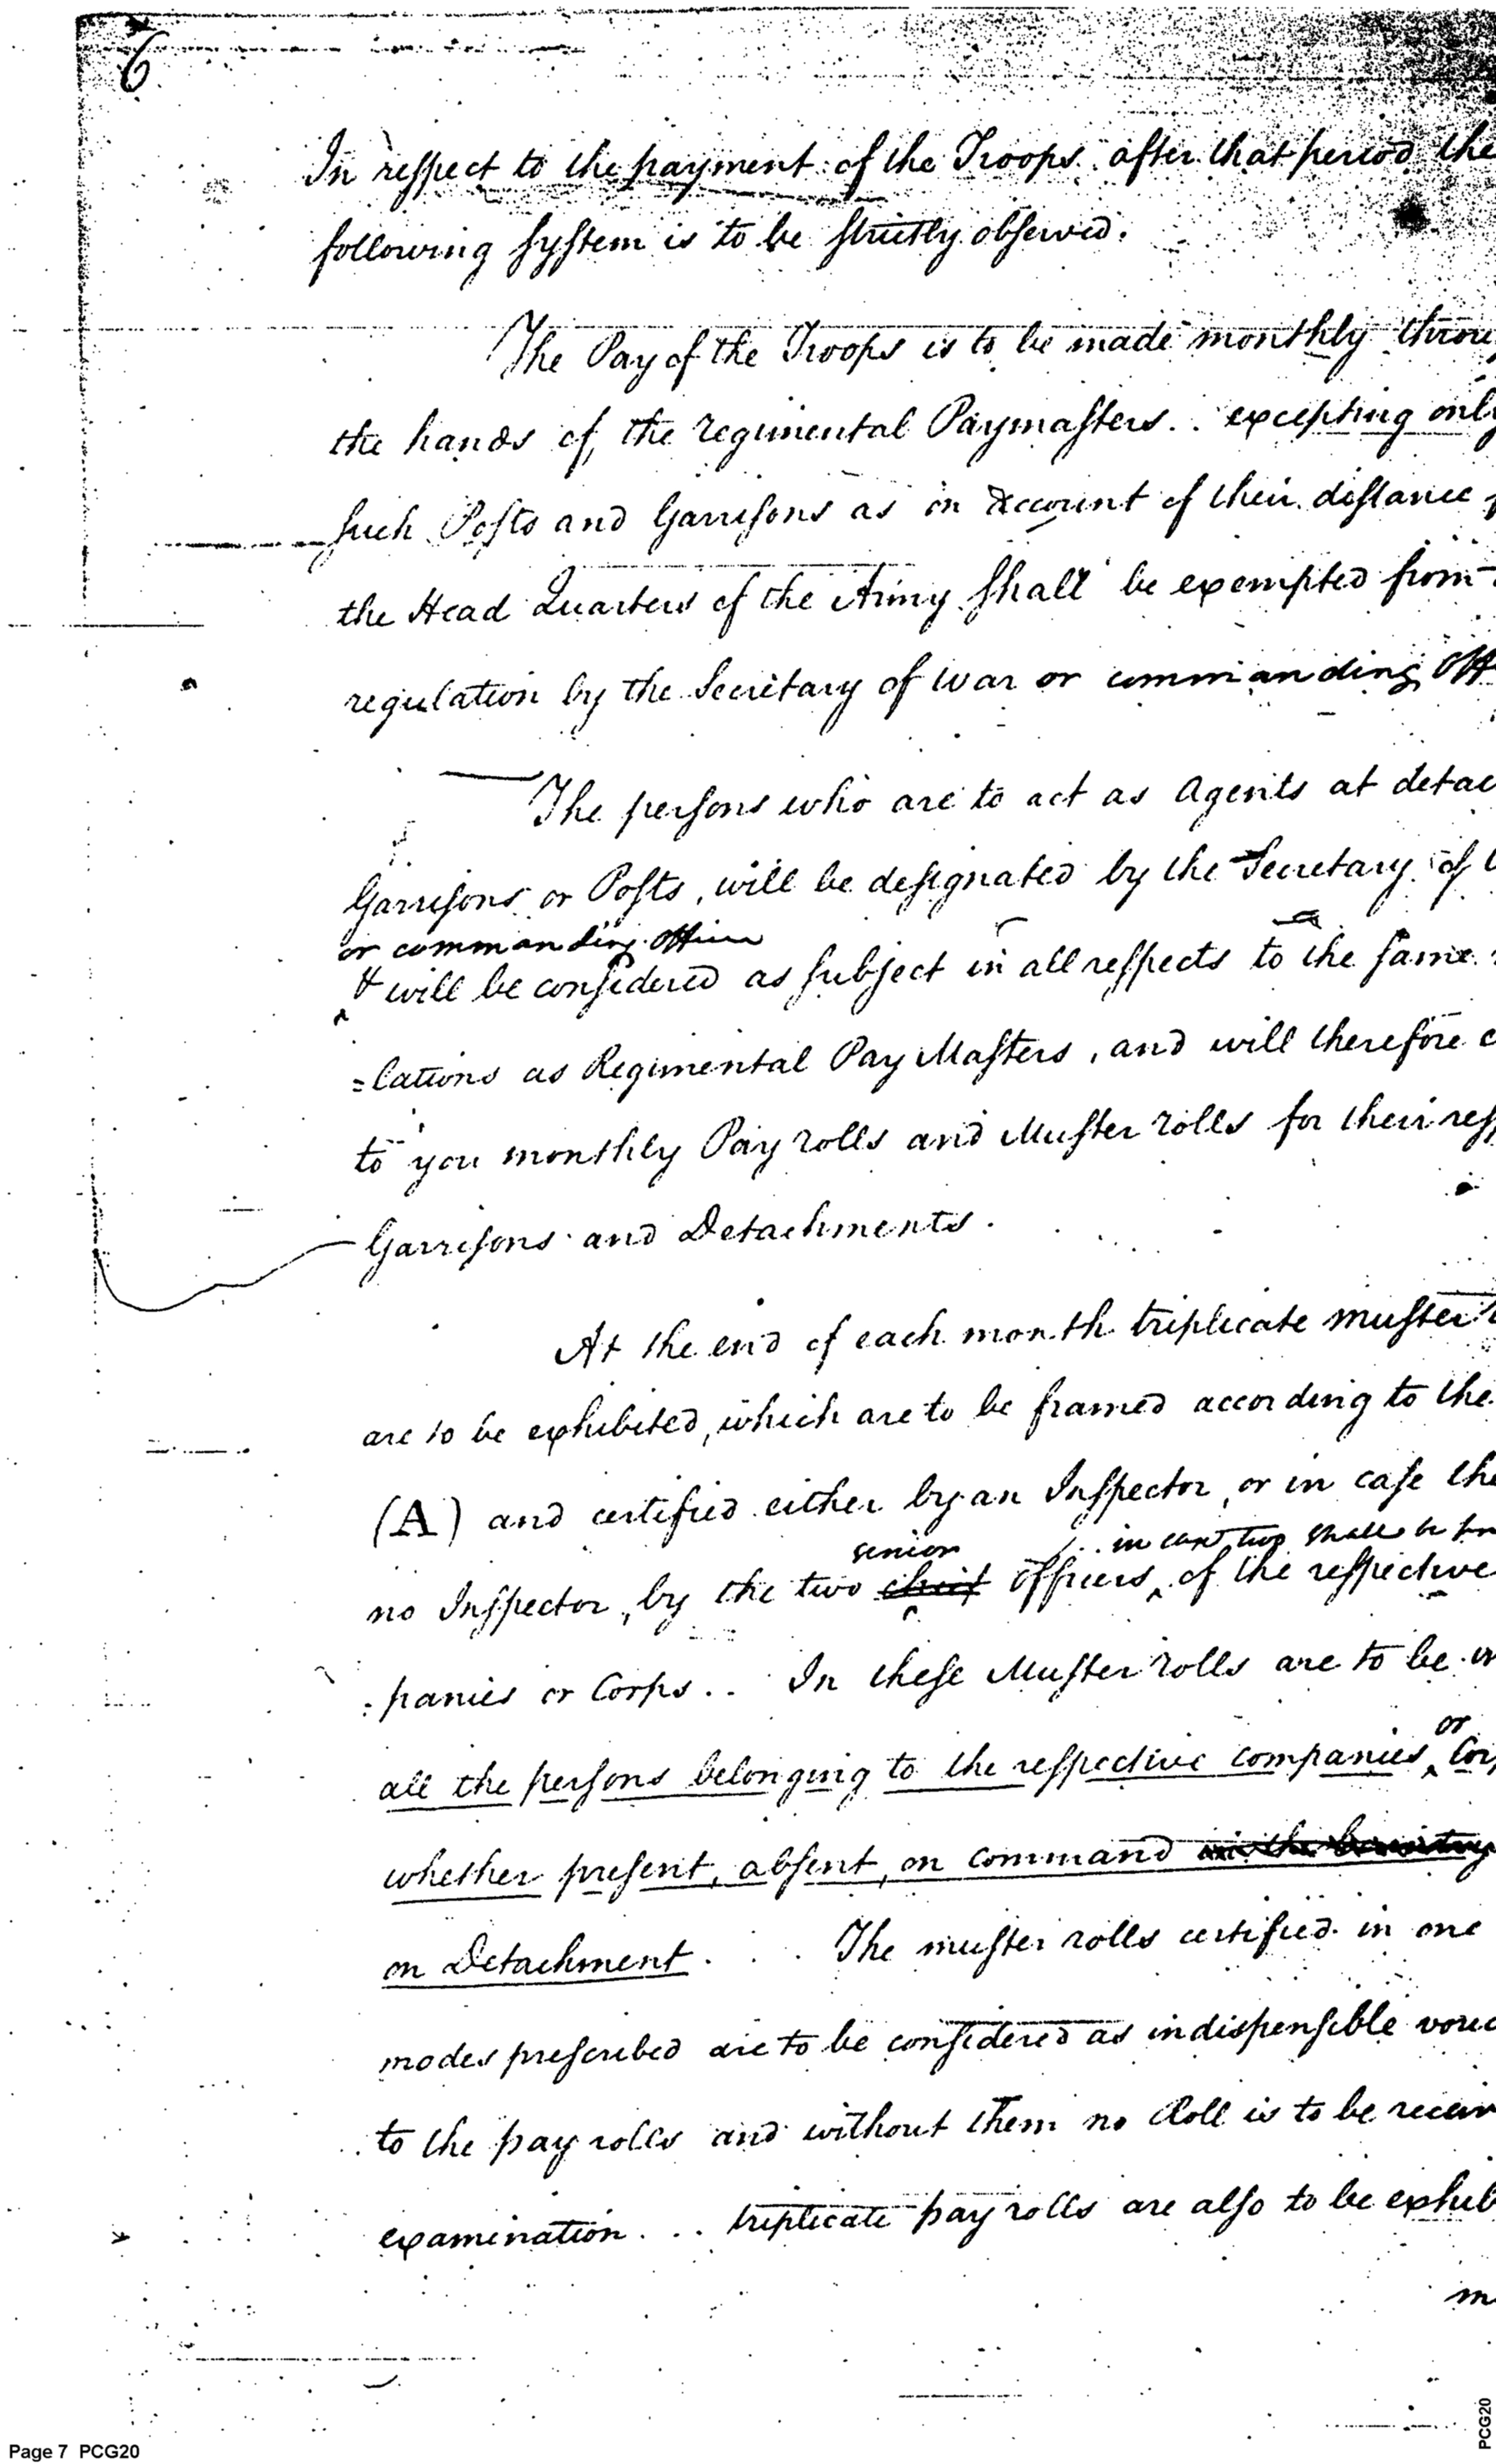 6
In respect to the payment of the Troops after that period the
following system is to be strictly observed.
The Pay of the Troops is to be made monthly throu
the hands of the regimental Paymasters.. excepting only
such Posts and Garrisons as on account of their distance f
the Head Quarters of the Army shall be exempted from
regulation by the Secretary of War or commanding off
The persons who are to act as Agents at detac
Garrisons or Posts, will be designated by the Secretary of
or commanding officer
& will be considered as subject in all respects to the same
=lations as Regimental Pay Masters, and will therefore
to you monthly Pay rolls and Muster rolls for their resp
Garrisons and Detachments.
At the end of each month triplicate muster
are to be exhibited, which are to be framed according to the
(A) and certified either by an Inspector, or in case the
senior in case two shall be
no Inspector, by the two chief officers of the respective
panies or Corps.. In these Muster rolls are to be
or
all the persons belonging to the respective companies Cor
whether present, absent, on command
on Detachment. The muster rolls certified in one
modes prescribed are to be considered as indispensible vouc
to the pay rolls and without them no Roll is to be receiv
examination... triplicate pay rolls are also to be exhib
m
Page 7 PCG20
PCG20